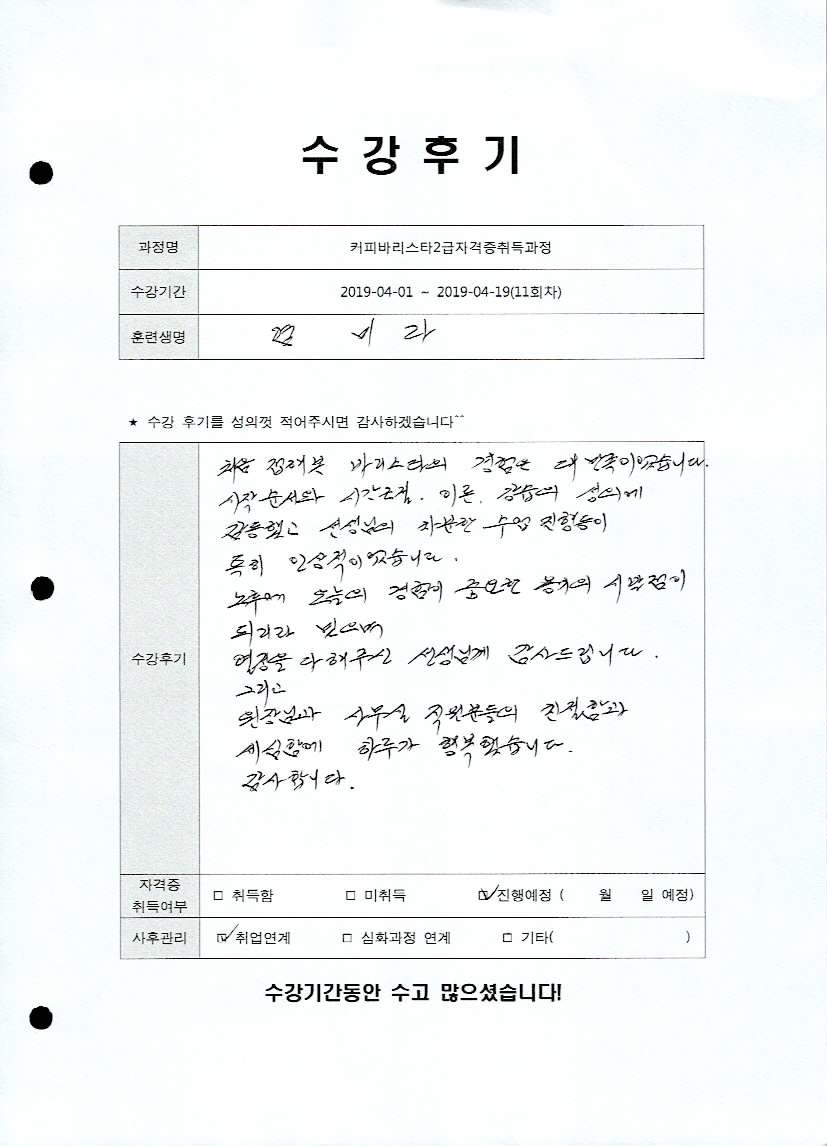 수강후기
과정명 커피바리스타2급자격증취득과정
수강기간 2019-04-01 ~ 2019-04-19(11회차)
훈련생명 김 미라
★ 수강 후기를 성의껏 적어주시면 감사하겠습니다^^
처음 접해본 바리스타의 경험은 대 만족이었습니다.
시작 순서와 시간조절, 이론, 강습의 성의에
감동했고 선생님의 차분한 수업 진행등이
특히 인상적이었습니다.
노후에 오늘의 경험이 중요한 시작점이
되리라 믿으며
열강을 다해주신 선생님께 감사드립니다.
수강후기
그리고
원장님과 사무실 직원분들의 친절함과
세심함에 하루가 행복했습니다.
감사합니다.
자격증 취득여부 □ 취득함 □ 미취득 ☑ 진행예정 ( 월 일 예정)
사후관리 ☑ 취업연계 □ 심화과정 연계 □ 기타( )
수강기간동안 수고 많으셨습니다!